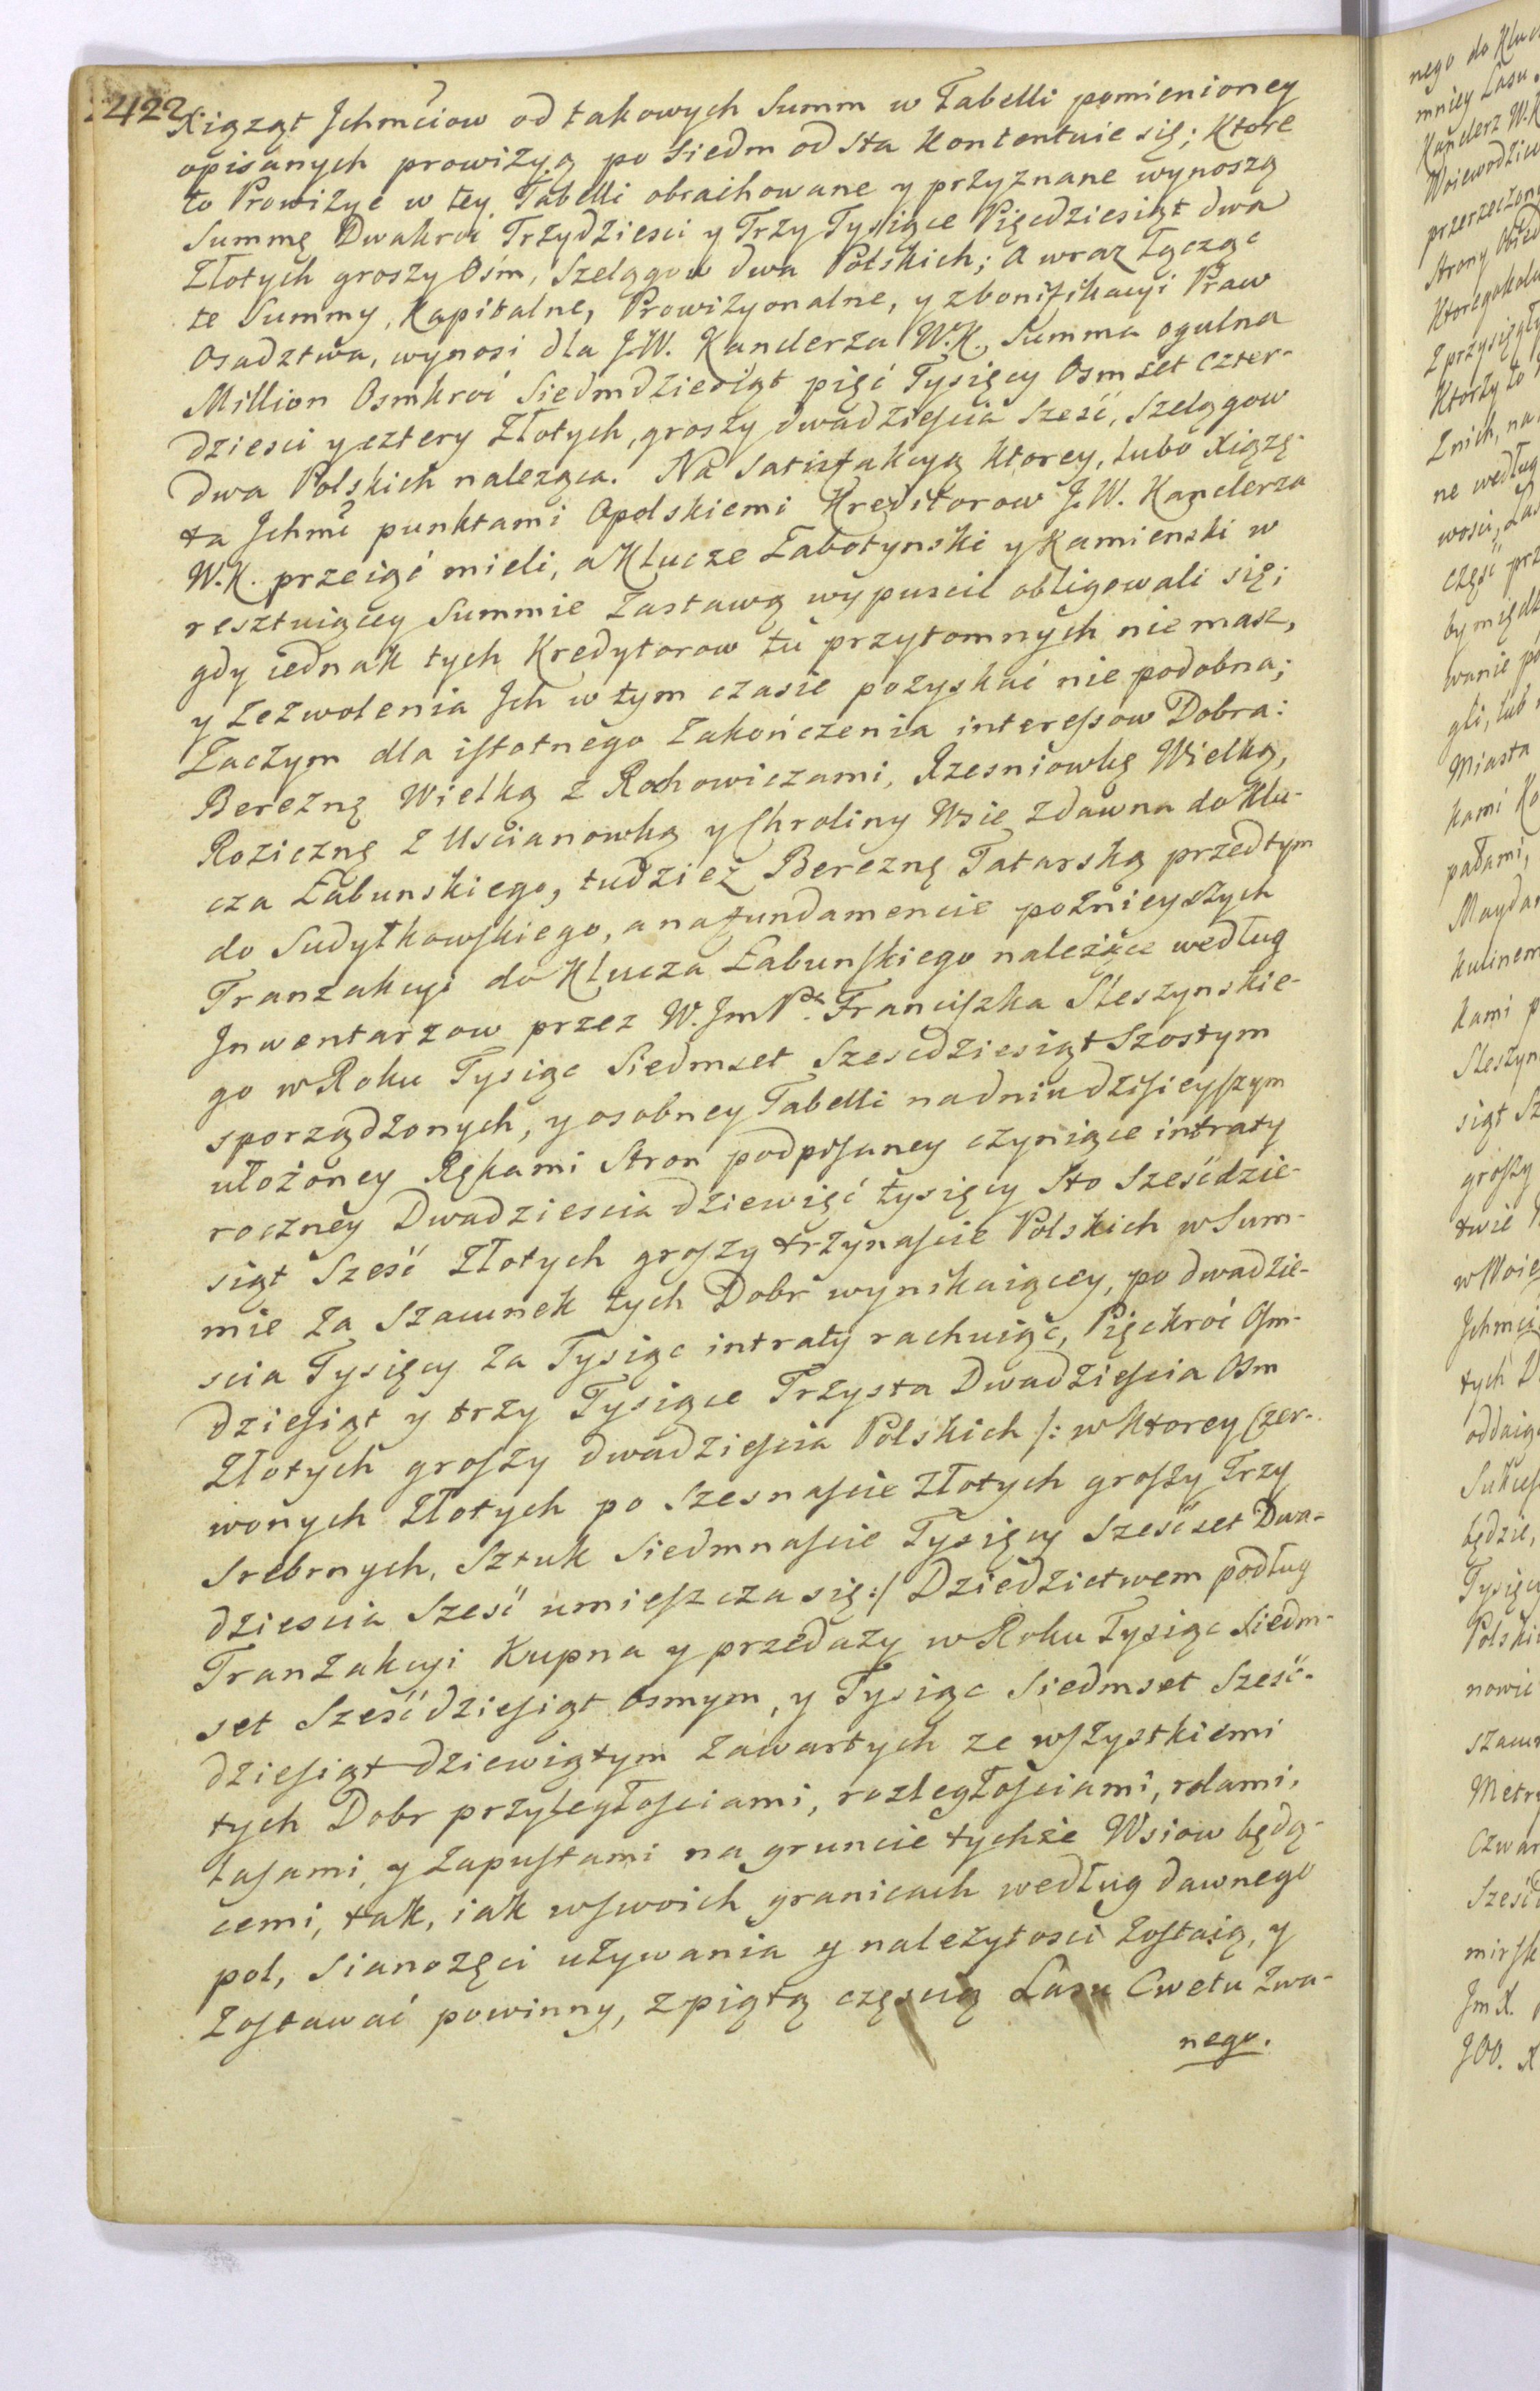 422
Xiąząt Jchmciow od takowych Summ w Tabelli pomienioney
opisanych prowizyą po siedm od sta kontentuie się; Ktore
to Prowizye w tey Tabelli obrachowane y przyznane wynoszą
Summę Dwakroć Trzydziesci y Trzy Tysiące Pięcdziesiąt dwa
Złotych groszy Ośm, Szelągow dwa Polskich; A wraz łącząc
te Summy, Kapitalne, Prowizyonalne, y z bonifikacyi Praw
Osadztwa, wynosi dla J.W. Kanclerza W.K. Summa ogulna
Million Osmkroć Siedmdziesiąt pięć Tysięcy Osmset czter-
dziesci y cztery Złotych, groszy dwadziescia Sześć, Szelągow
dwa Polskich naleząca. Na Satisfakcyą ktorey, lubo Xiązę-
ta Jchmć punktami Opolskiemi Kredytorow J.W. Kanclerza
W.K. przeiąć mieli, a Klucze Łabotynski y Kamienski w
resztuiącey Summie Zastawą wypuscić obligowali się;
gdy iednak tych Kredytorow tu przytomnych nie masz,
y zezwolenia Jch w tym czasie pozyskać nie podobna;
Zaczym dla istotnego zakończenia interessow Dobra:
Berezną Wielką z Rohowiczami, Rzesniowkę Wielką,
Roziczną z Uscianowką y Chroliny Wsie zdawna do Klu-
cza Łabunskiego, tudziez Berezną Tatarską przedtym
do Sudyłkowskiego, a na fundamencie poznieyszych
Tranzakcyi do Klucza Łabunskiego należące według
Jnwentarzow przez W. Jm Pa. Franciszka Sleszynskie-
go w Roku Tysiąc Siedmset Szescdziesiąt Szostym
sporządzonych, y osobney Tabelli na dniu dzisieyszym
ułożoney Rękami Stron podpisaney czyniące intraty
roczney Dwadziescia dziewięć tysięcy Sto Sześćdzie-
siąt Sześć Złotych groszy trzynascie Polskich w Sum-
mie za Szacunek tych Dobr wynikaiącey, po dwadzie-
scia Tysięcy za Tysiąc intraty rachuiąc, Pięckroć Osm-
dziesiąt y trzy Tysiące Trzysta Dwadziescia Osm
Złotych groszy dwadziescia Polskich /: w ktorey Czer-
wonych Złotych po Szesnascie Złotych groszy Trzy
Srebrnych, Sztuk Siedmnascie Tysięcy Sześćset Dwa-
dziescia Sześć umieszcza się :/ Dziedzictwem podług
Tranzakcyi Kupna y przedazy w Roku Tysiąc Siedm-
set Sześćdziesiąt osmym, y Tysiąc Siedmset Sześć-
dziesiąt dziewiątym zawartych ze wszystkiemi
tych Dobr przyległosciami, rozległosciami, rolami,
lasami, y zapustami na gruncie tychże Wsiow będą-
cemi, tak, iak w swoich granicach według dawnego
pol, Sianozęci używania y nalezytosci zostaią, y
zostawać powinny, z piątą częscią Lasu Cwetu zwa-
nego.